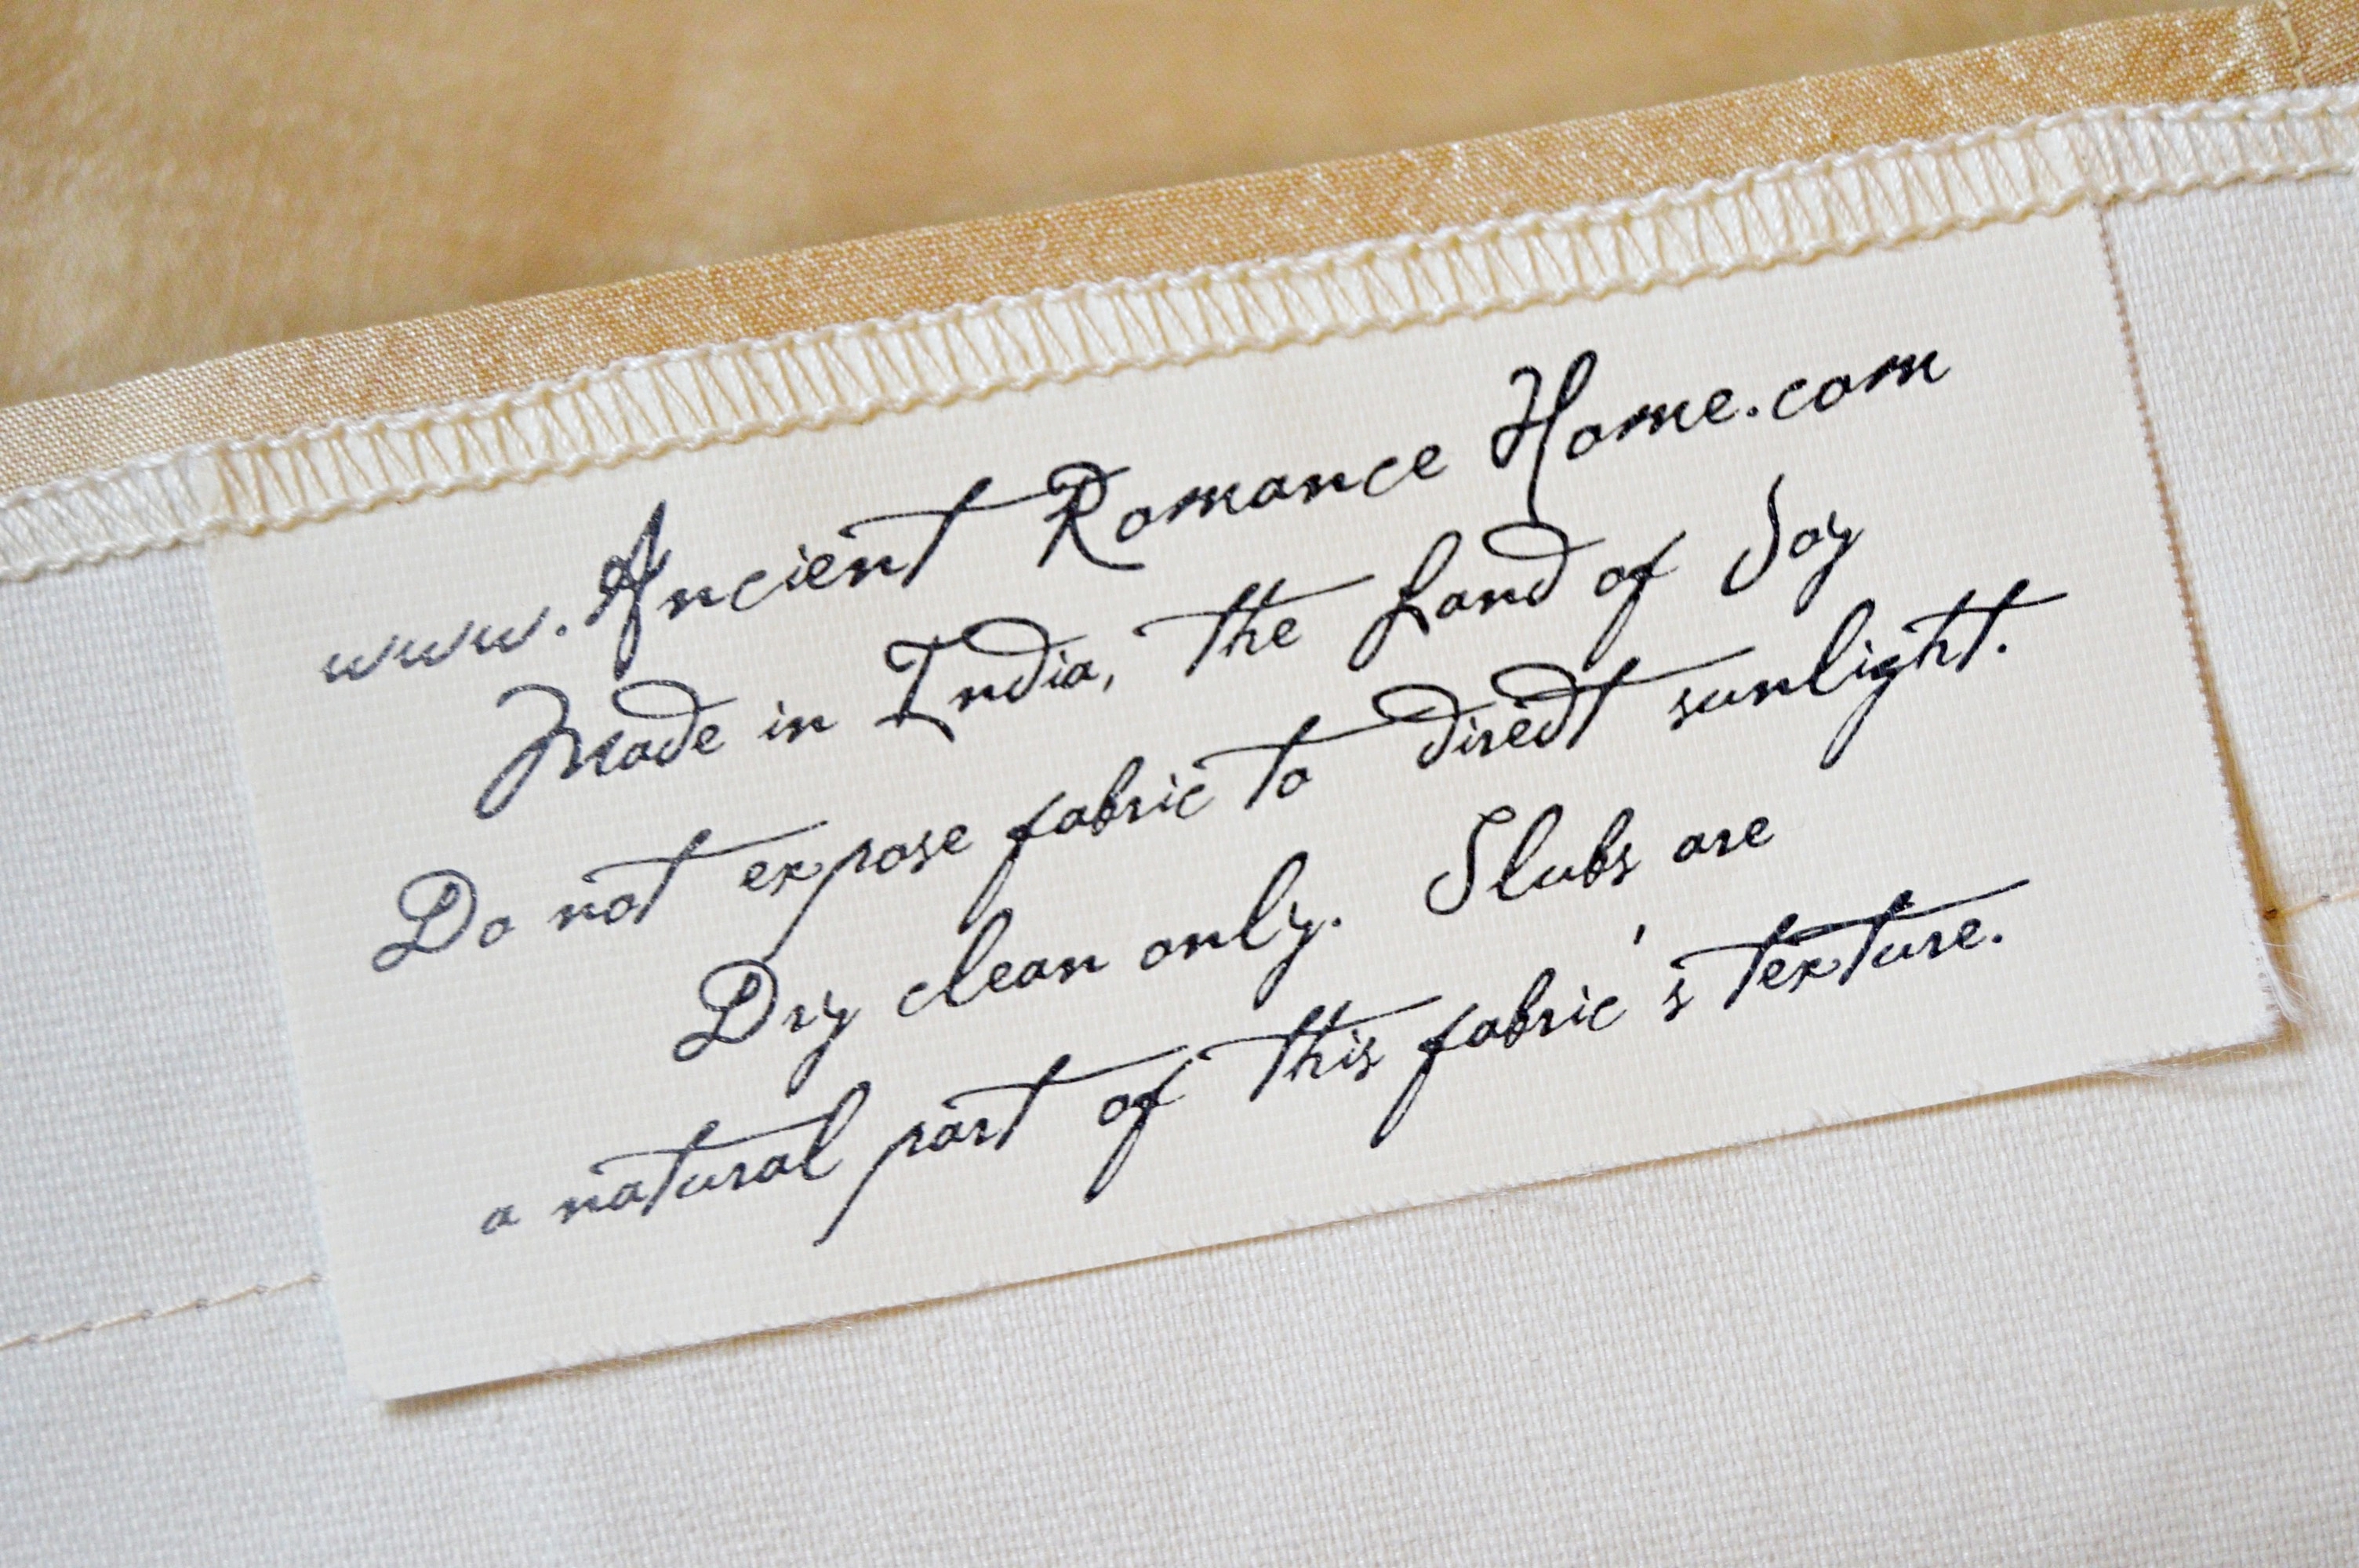 www.Ancient Romance Home.com
Made in India, the Land of Joy
Do not expose fabric to direct sunlight.
Dry clean only. Slubs are
a natural part of this fabric's texture.